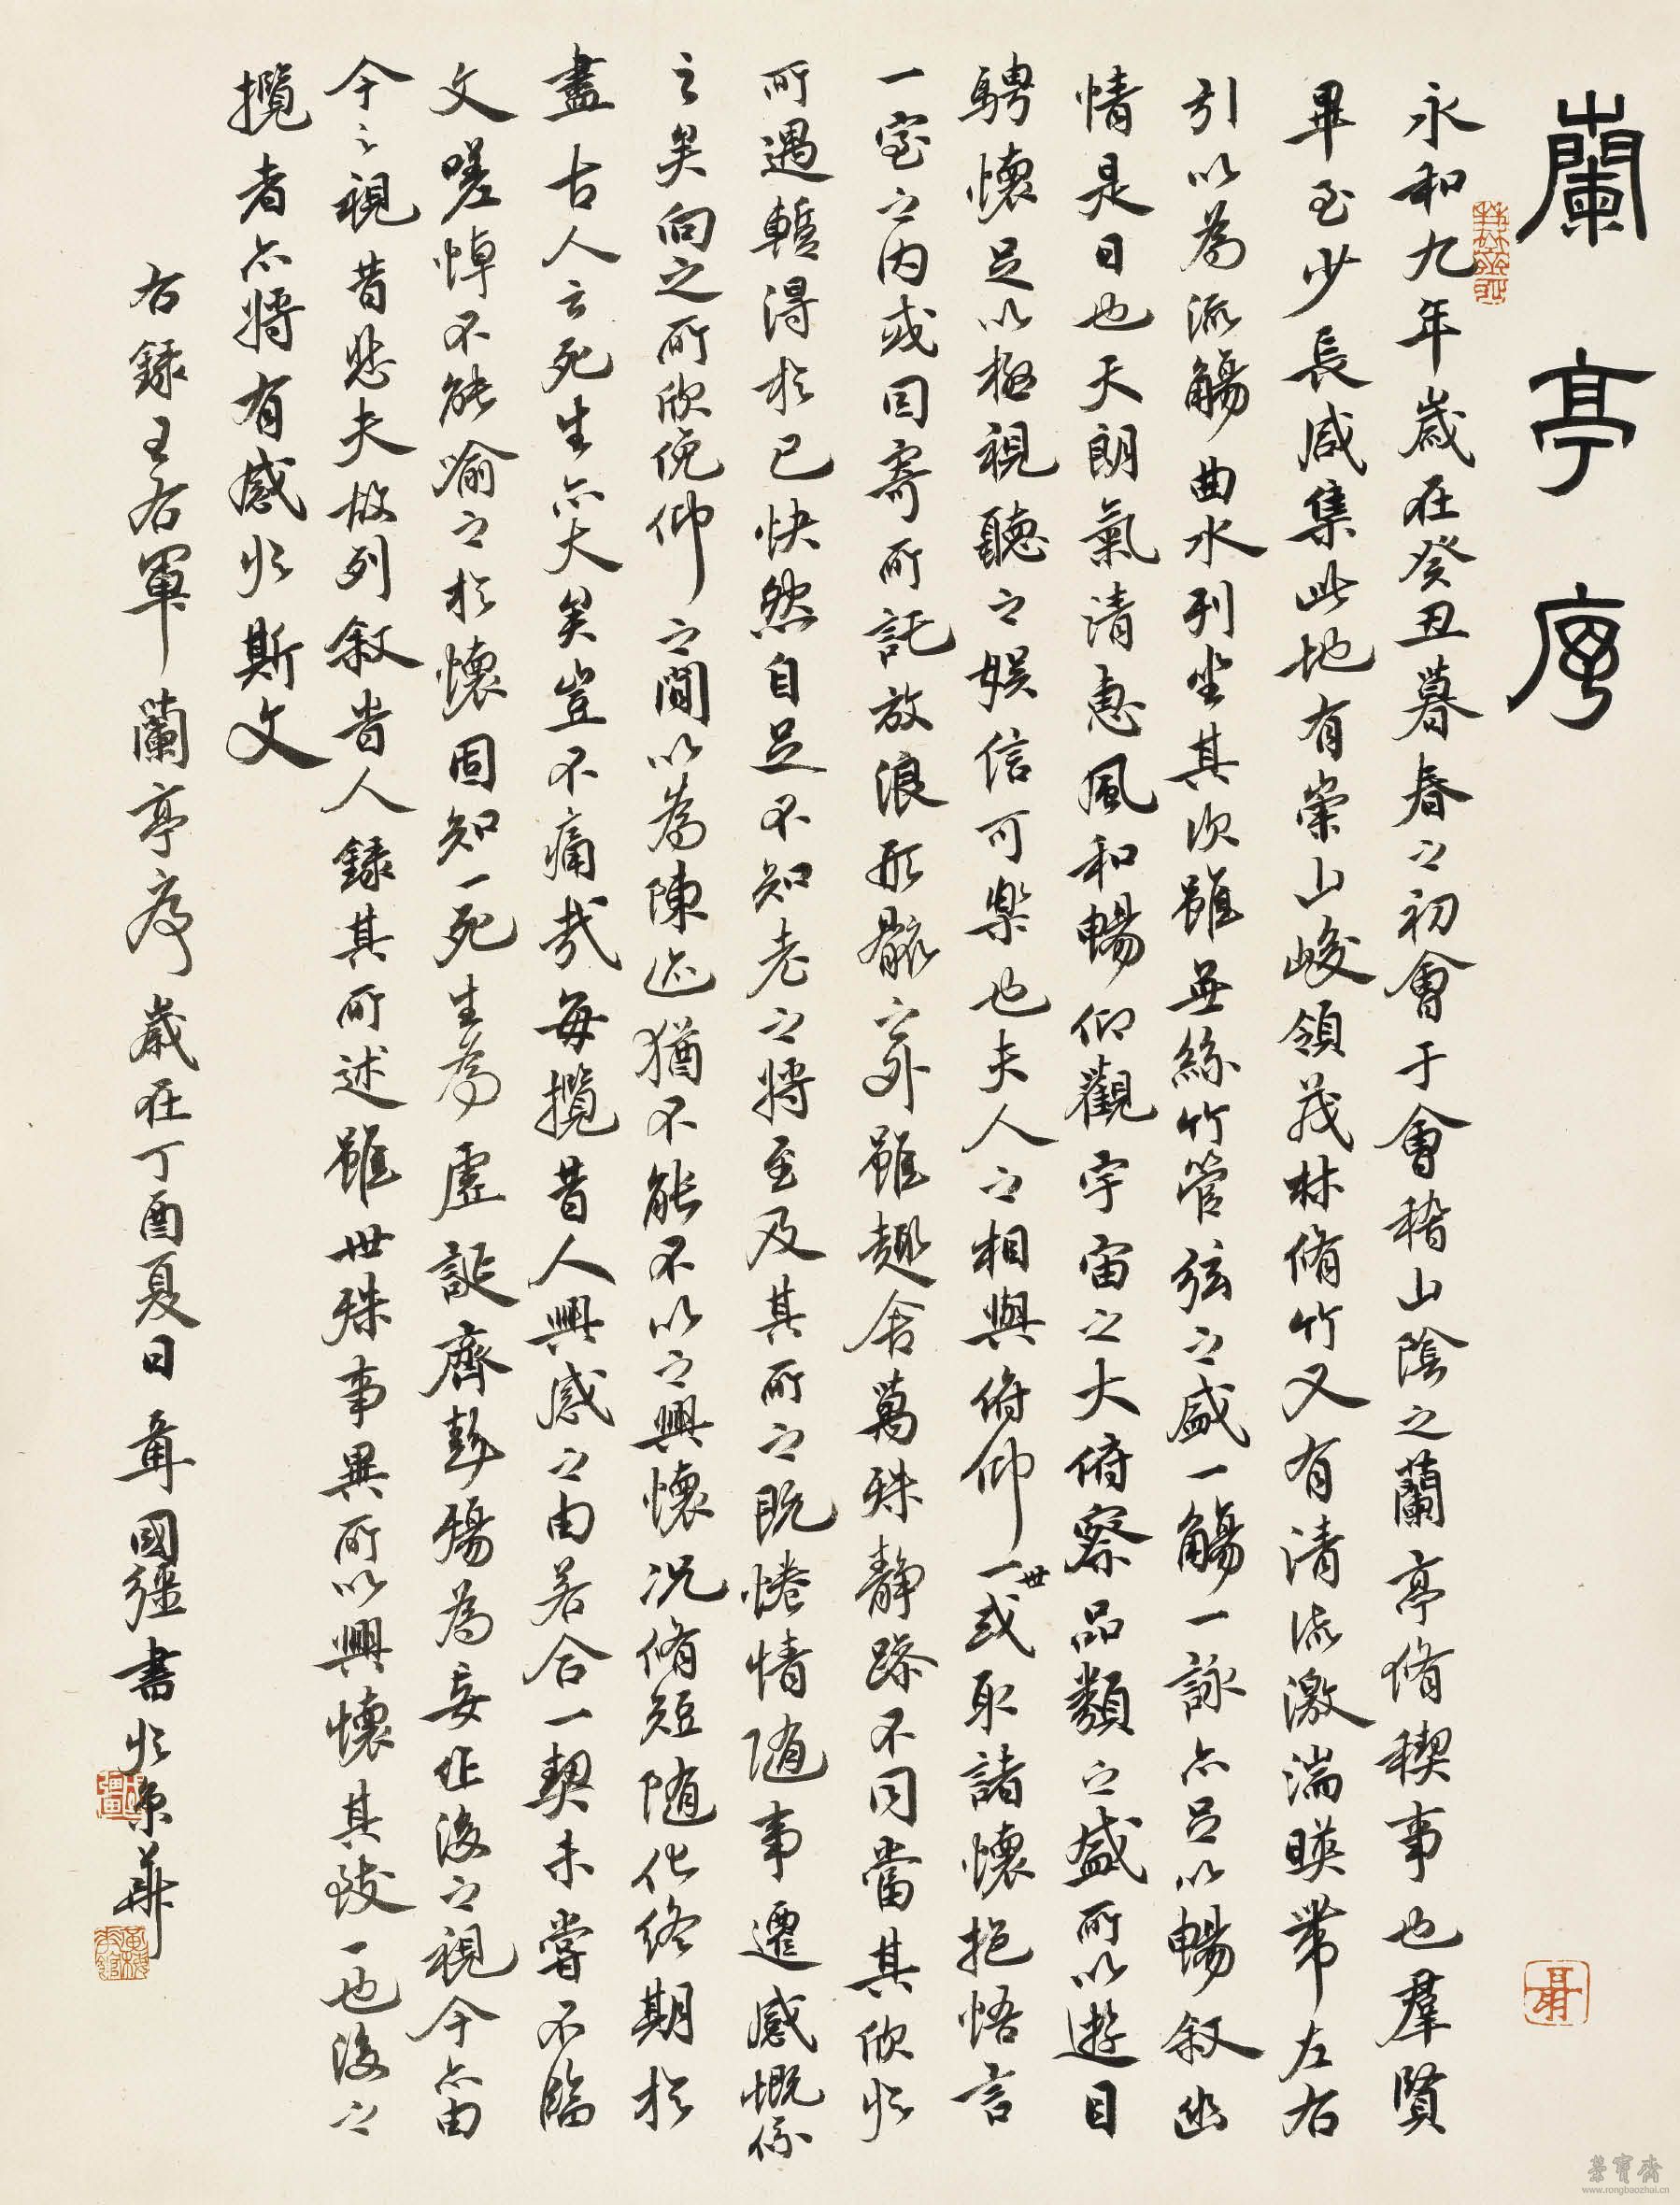 蘭亭序
永和九年歲在癸丑暮春之初會于會稽山陰之蘭亭脩稧事也羣賢
畢至少長咸集此地有崇山峻領茂林脩竹又有清流激湍暎帶左右
引以為流觴曲水列坐其次雖無絲竹管弦之盛一觴一詠亦足以暢叙幽
情是日也天朗氣清惠風和暢仰觀宇宙之大俯察品類之盛所以遊目
騁懷足以極視聽之娛信可樂也夫人之相與俯仰一世或取諸懷抱悟言
一室之內或因寄所託放浪形骸之外雖趣舍萬殊靜躁不同當其欣於
所遇暫得於己快然自足不知老之將至及其所之既惓情隨事遷感慨係
之矣向之所欣俛仰之間以為陳迹猶不能不以之興懷況脩短隨化終期於
盡古人云死生亦大矣豈不痛哉每攬昔人興感之由若合一契未嘗不臨
文嗟悼不能喻之於懷固知一死生為虛誕齊彭殤為妄作後之視今亦由
今之視昔悲夫故列叙時人錄其所述雖世殊事異所以興懷其致一也後之
攬者亦將有感於斯文
右錄王右軍蘭亭序歲在丁酉夏日聶國強書於京華
榮寶齋
www.rongbaozhai.cn